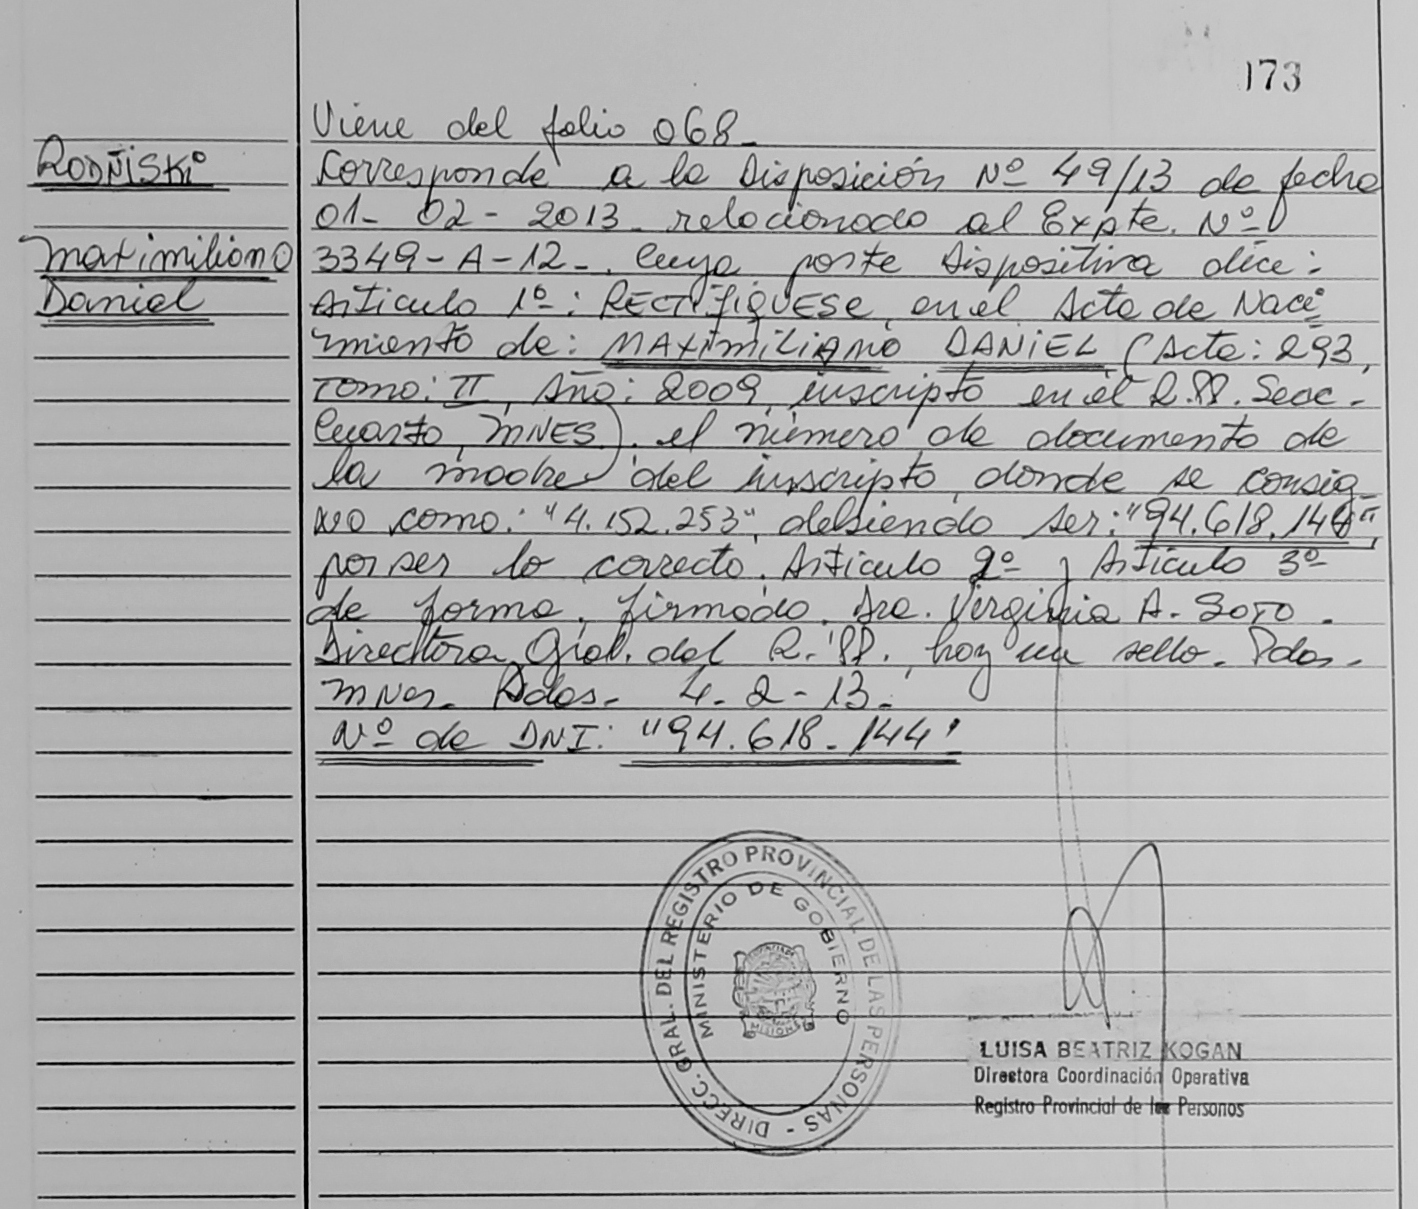 173
Viene del folio 068.-
RODÑISKi
Corresponde a la Disposición Nº 49/13 de fecha
01- 02 - 2013. relacionado al Expte. Nº
Maximiliano
3349-A-12-. Cuya parte Dispositiva dice:
Daniel
Artículo 1º: RECTIFIQUESE, en el Acta de Naci
miento de: MAXIMILIANO DANIEL (Acta: 293,
Tomo: II, Año: 2009, inscripto en el R.PP. Secc.
Cuarta, MNES), el número de documento de
la madre del inscripto, donde se consig-
no como: "4.152.253", debiendo ser: "94.618.144",
por ser lo correcto. Artículo 2º y Artículo 3º
de forma. firmado. Dra. Virginia A. SOTO.
Directora Gral. del R. PP. hay un sello. Pdas.
MNes. Pdas- 4- 2-13-
Nº de DNI: "94.618.144"
DIRECC. GRAL. DEL REGISTRO PROVINCIAL DE LAS PERSONAS -
MINISTERIO DE GOBIERNO
MISIONES
LUISA BEATRIZ KOGAN
Directora Coordinación Operativa
Registro Provincial de las Personas